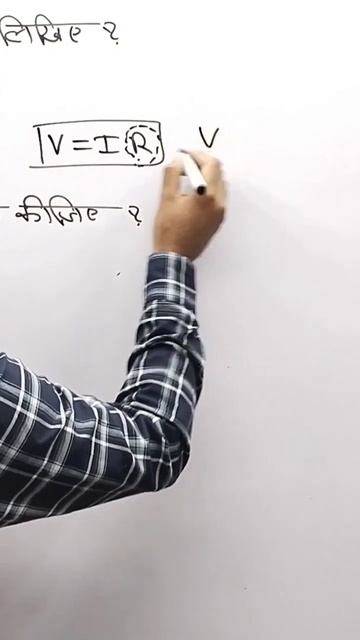 लिखिए ?
V = I R V
कीजिए ?